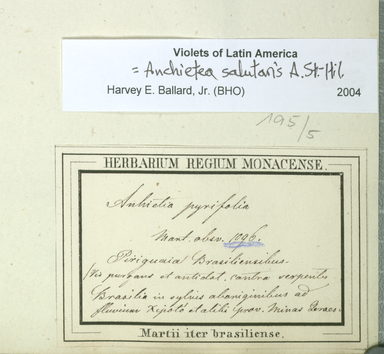 Violets of Latin America
= Anchietea salutaris A. St-Hil.
Harvey E. Ballard, Jr. (BHO) 2004
195/5
HERBARIUM REGIUM MONACENSE.
Anhietia pyrifolia
Mart. obsv. 1296.
Piriguaia Brasiliensibus
Vis purgans et antidot. contra serpentes
Brasilia in sylvis aboriginibus ad
fluvium Xipotó et alibi prov. Minas Geraes.
Martii iter brasiliense.